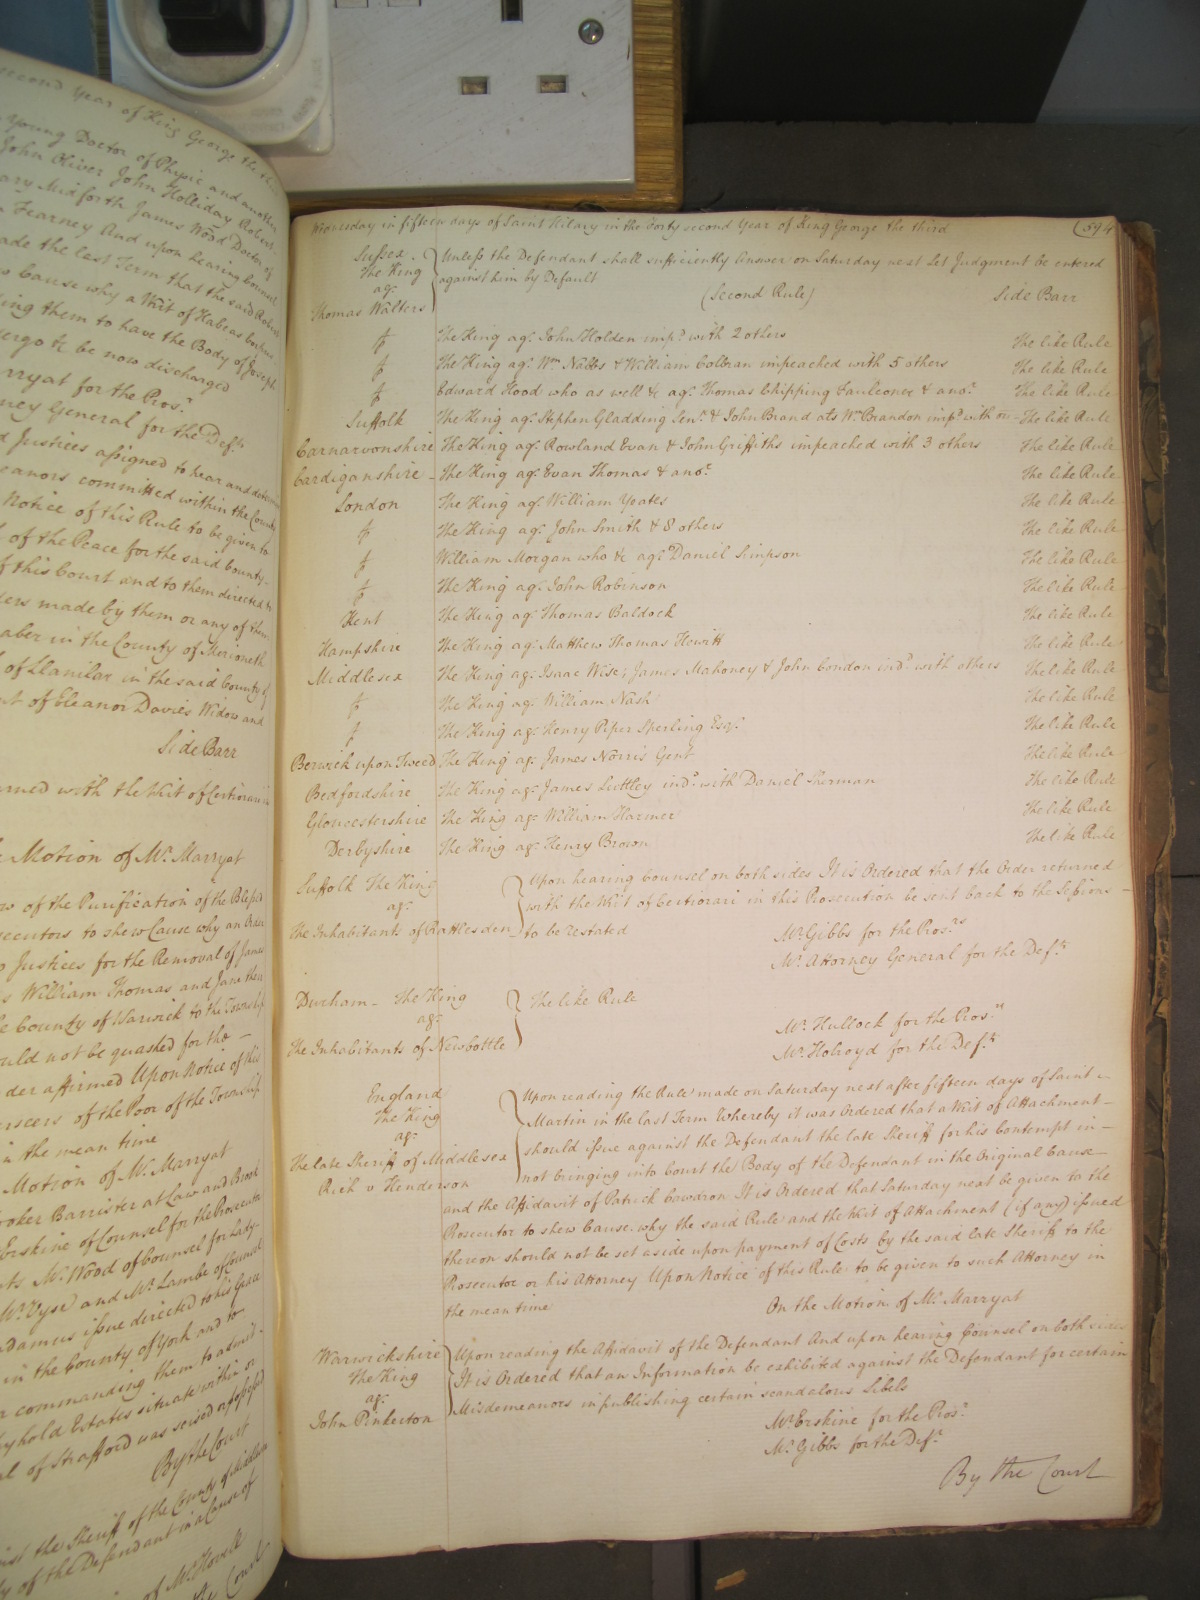 second Year of King George the th
Young Doctor of Physic and another
John Oliver John Holliday Robert
ary Midforth James Wood Doctor of
Fearney And upon hearing Counsel
ade the last Term that the said Robert
w Cause why a Writ of Habeas Corpus
ing them to have the Body of Joseph
ergo &c be now discharged
rryat for the Pros.r
ney General for the Def.ts
d Justices assigned to hear and determine
eanors committed within the County
Notice of this Rule to be given to
of the Peace for the said County
f this Court and to them directed to
ders made by them or any of them
aber in the County of Merioneth
of Llanilar in the said County of
nt of Eleanor Davies Widow and
Side Barr
urned with the Writ of Certiorari in
Motion of Mr. Marryat
ow of the Purification of the Blessed
secutors to shew Cause why an Order
o Justices for the Removal of James
s William Thomas and Jane their
e County of Warwick to the Township
uld not be quashed for the
der affirmed Upon Notice of this
rseers of the Poor of the Township
in the mean time
Motion of Mr. Marryat
roker Barrister at Law and Brook
Erskine of Counsel for the Prosecutor
nts Mr. Wood of Counsel for Lady
Mr. Vyse and Mr. Lambe of Counsel
ndamus issue directed to his Grace
in the County of York and to
r commanding them to
hold Estates situate within or
l of Strafford was seised or possessed
By the Court
inst the Sheriff of the County of Middlesex
y of the Defendant in a Cause of
of Mr. Howell
the Court
Wednesday in fifteen days of Saint Hilary in the Forty second Year of King George the third
(594
Sussex.
The King
ag.t
Thomas Walters
Unless the Defendant shall sufficiently Answer on Saturday next Let Judgment be entered
against him by Default
(Second Rule)
Side Barr
The King ag.t John Holden imp.d with 2 others The like Rule
The King ag.t Wm. Nabbs & William Colbran impeached with 5 others The like Rule
Edward Hood who as well &c ag.t Thomas Chipping Faulconer & ano.r The like Rule
Suffolk The King ag.t Stephen Gladding Sen.r & John Brand ats Wm. Brandon imp.d with on The like Rule
Carnarvonshire The King ag.t Rowland Evan & John Griffiths impeached with 3 others The like Rule
Cardiganshire The King ag.t Evan Thomas & ano.r The like Rule
London The King ag.t William Yeates The like Rule
The King ag.t John Smith & 8 others The like Rule
William Morgan who &c ag.t Daniel Simpson The like Rule
The King ag.t John Robinson The like Rule
Kent The King ag.t Thomas Baldock The like Rule
Hampshire The King ag.t Matthew Thomas Hewitt The like Rule
Middlesex The King ag.t Isaac Wise, James Mahoney & John Condon ind.d with others The like Rule
The King ag.t William Nash The like Rule
The King ag.t Henry Piper Sperling Esq.r The like Rule
Berwick upon Tweed The King ag.t James Norris Gent The like Rule
Bedfordshire The King ag.t James Luttley ind.d with Daniel Sherman The like Rule
Gloucestershire The King ag.t William Harmer The like Rule
Derbyshire The King ag.t Henry Brown The like Rule
Suffolk The King
ag.t
The Inhabitants of Rattlesden
Upon hearing Counsel on both sides It is Ordered that the Order returned
with the Writ of Certiorari in this Prosecution be sent back to the Sessions
to be restated
Mr. Gibbs for the Pros.rs
Mr. Attorney General for the Def.ts
Durham - The King
ag.t
The Inhabitants of Newbottle
The like Rule
Mr. Hullock for the Pros.rs
Mr. Holroyd for the Def.ts
England
The King
ag.t
The late Sheriff of Middlesex
Rich v Henderson
Upon reading the Rule made on Saturday next after fifteen days of Saint
Martin in the last Term Whereby it was Ordered that a Writ of Attachment
should issue against the Defendant the late Sheriff for his Contempt in
not bringing into Court the Body of the Defendant in the Original Cause
and the Affidavit of Patrick Cawdron It is Ordered that Saturday next be given to the
Prosecutor to shew Cause why the said Rule and the Writ of Attachment (if any) issued
thereon should not be set aside upon payment of Costs by the said late Sheriff to the
Prosecutor or his Attorney Upon Notice of this Rule to be given to such Attorney in
the mean time
On the Motion of Mr. Marryat
Warwickshire
The King
ag.t
John Pinkerton
Upon reading the Affidavit of the Defendant And upon hearing Counsel on both sides
It is Ordered that an Information be exhibited against the Defendant for certain
Misdemeanors in publishing certain scandalous Libels
Mr. Erskine for the Pros.r
Mr. Gibbs for the Def.t
By the Court